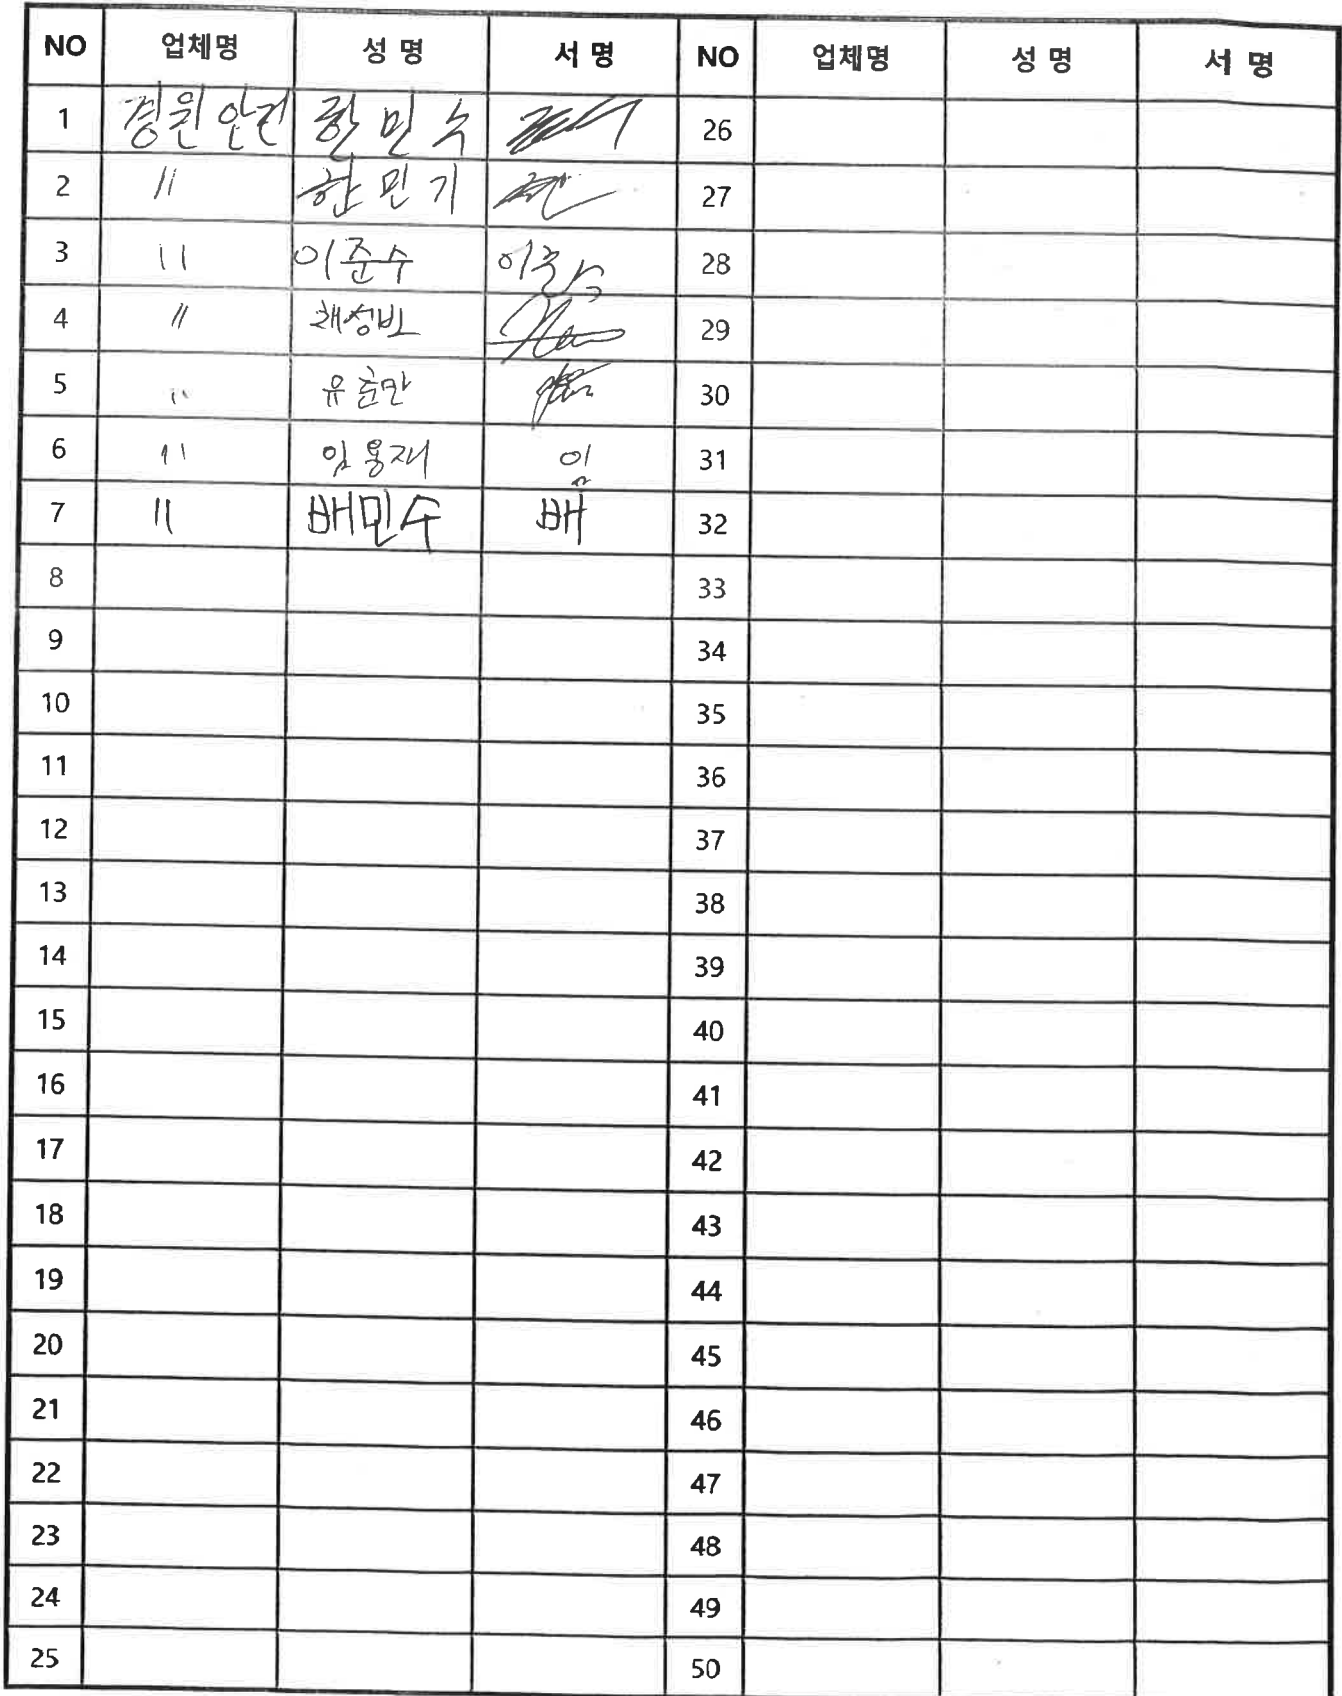 NO 업체명 성 명 서 명 NO 업체명 성 명 서 명
1 경원안전 한민수 26
2 〃 한민기 27
3 〃 이준수 이준수 28
4 〃 채성빈 29
5 〃 유춘만 30
6 〃 임용재 임 31
7 〃 배민수 배 32
8 33
9 34
10 35
11 36
12 37
13 38
14 39
15 40
16 41
17 42
18 43
19 44
20 45
21 46
22 47
23 48
24 49
25 50